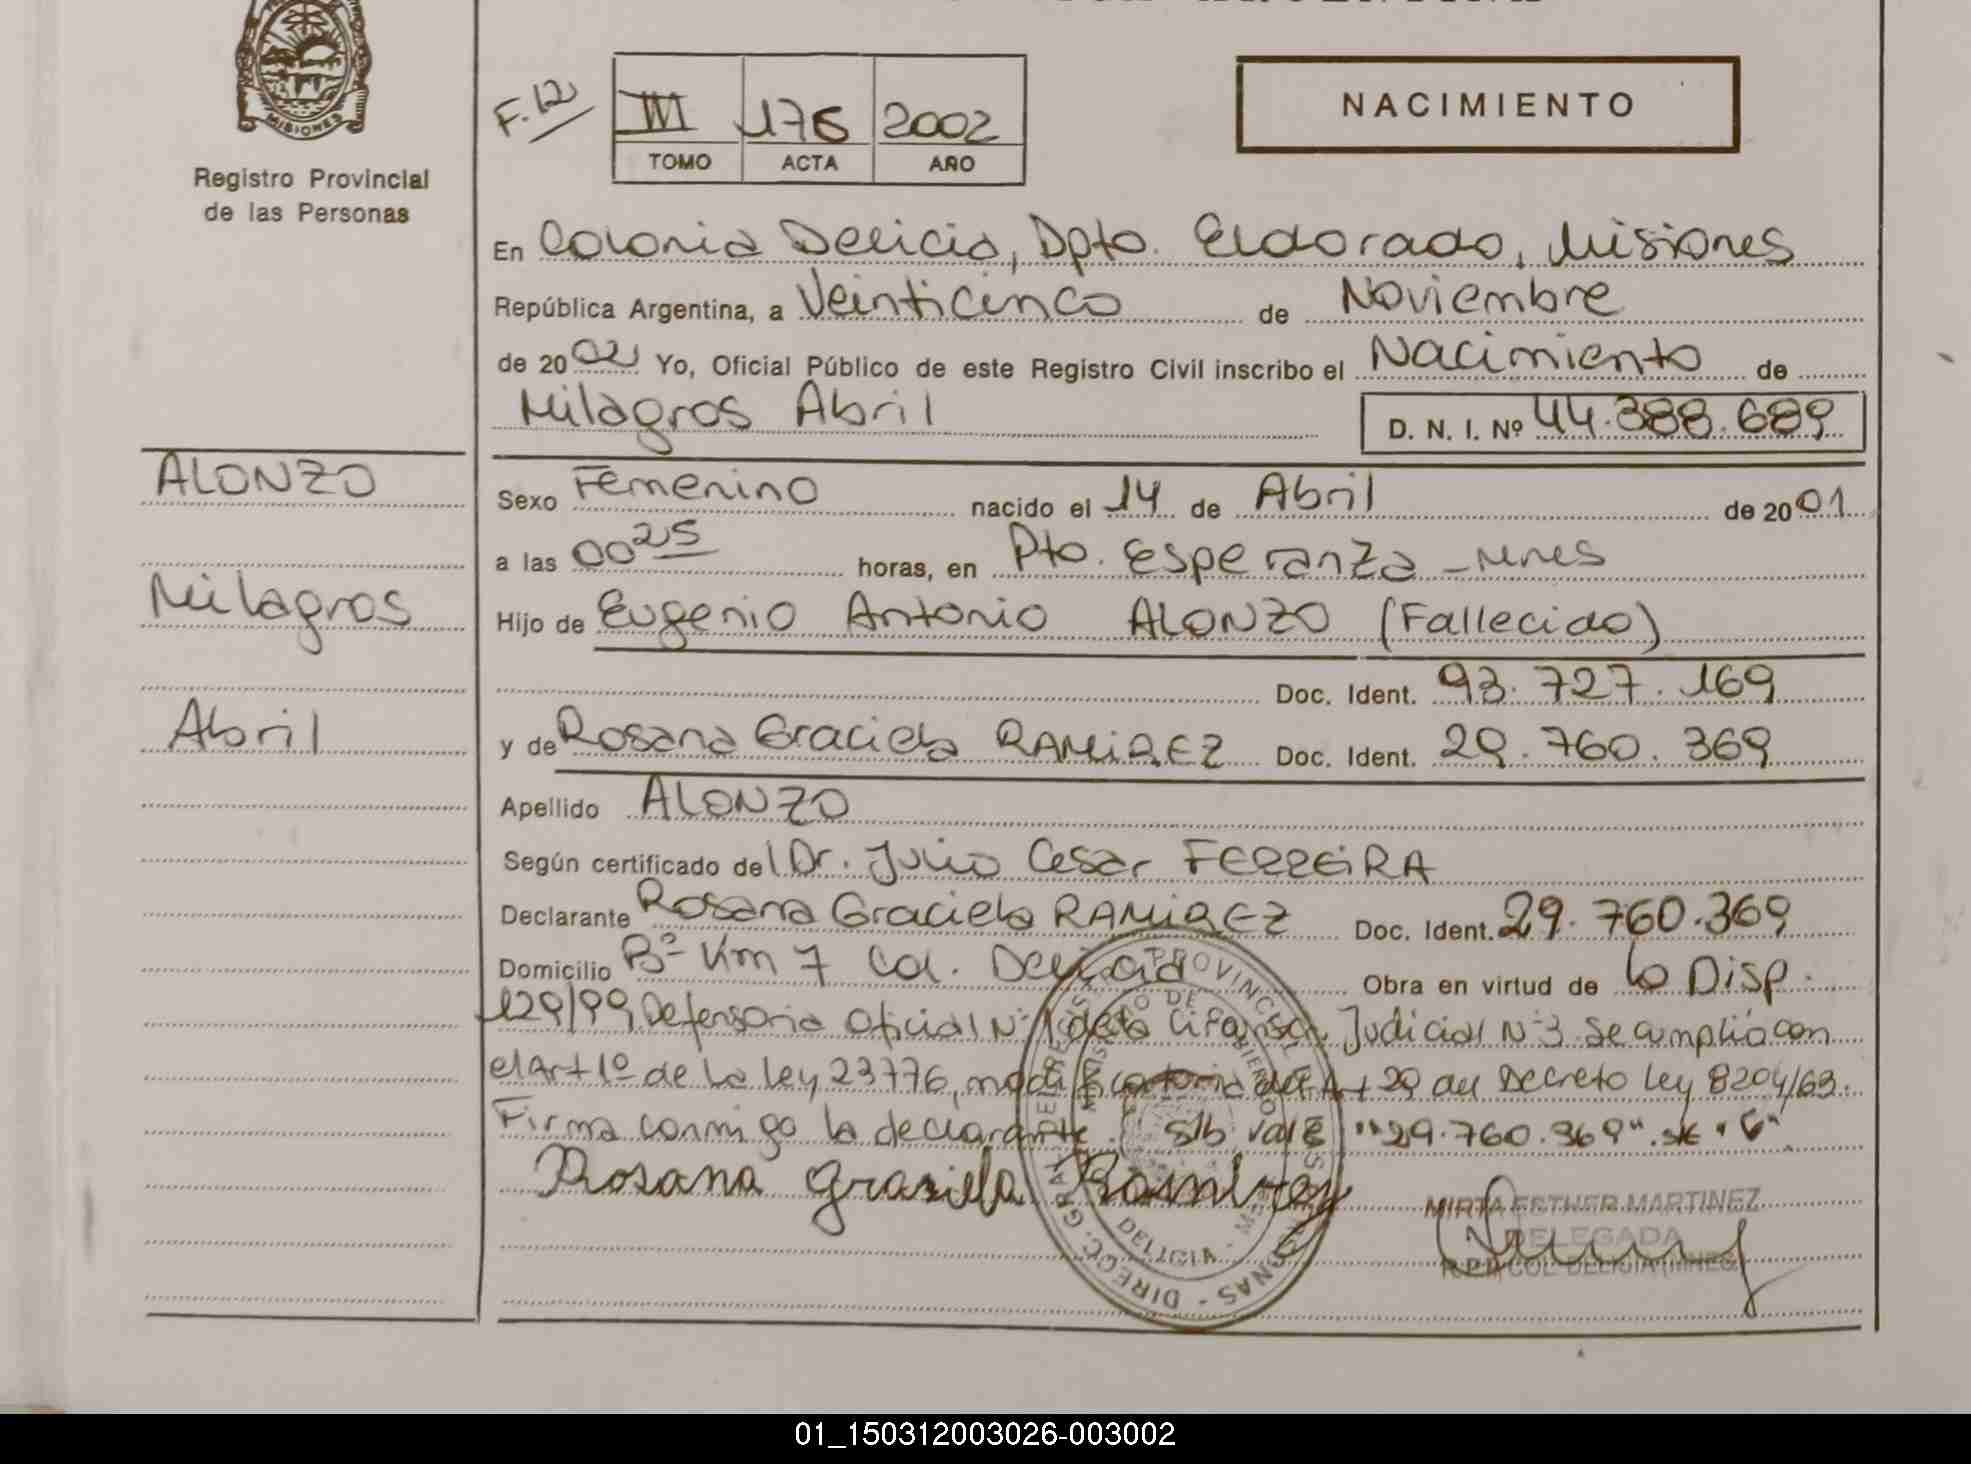 MISIONES
Registro Provincial
de las Personas
F. 121
III 176 2002
TOMO ACTA AÑO
NACIMIENTO
En Colonia Delicia, Dpto. Eldorado, Misiones
República Argentina, a Veinticinco de Noviembre
de 2002 Yo, Oficial Público de este Registro Civil inscribo el Nacimiento de
Milagros Abril
D. N. I. Nº 44.388.689
ALONZO
Milagros
Abril
Sexo Femenino nacido el 14 de Abril de 2001
a las 00 25 horas, en Pto. Esperanza - Mnes
Hijo de Eugenio Antonio ALONZO (Fallecido)
Doc. Ident. 93.727.169
y de Rosana Graciela RAMIREZ Doc. Ident. 29.760.369
Apellido ALONZO
Según certificado del Dr. Julio Cesar FERREIRA
Declarante Rosana Graciela RAMIREZ Doc. Ident. 29.760.369
Domicilio Bº Km 7 Col. Delicia Obra en virtud de la Disp.
129/99 Defensoria Oficial Nº 1 de la Circunscr. Judicial Nº 3. Se cumplió con
el Art 1º de la Ley 23776, modificatoria del Art 29 del Decreto Ley 8204/63.
Firma conmigo la declarante. S/b vale "29.760.369".
Rosana Graciela Ramirez
MIRTA ESTHER MARTINEZ
DELEGADA
R.P.P. COL. DELICIA (MNES)
01_150312003026-003002